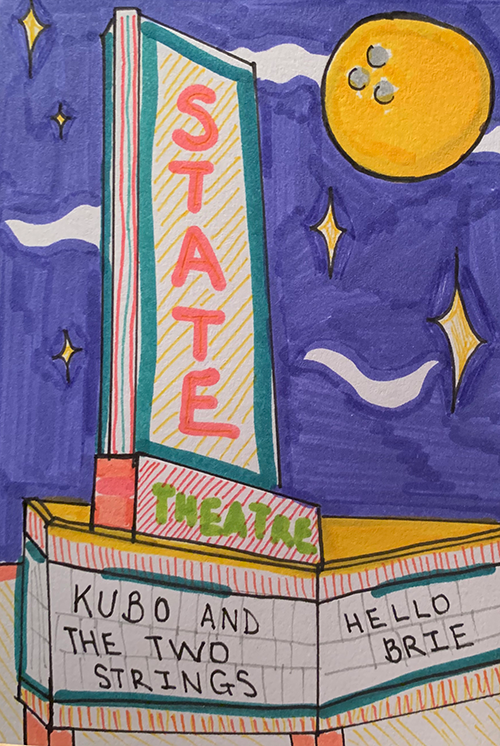 STATE
THEATRE
KUBO AND
THE TWO
STRINGS
HELLO
BRIE